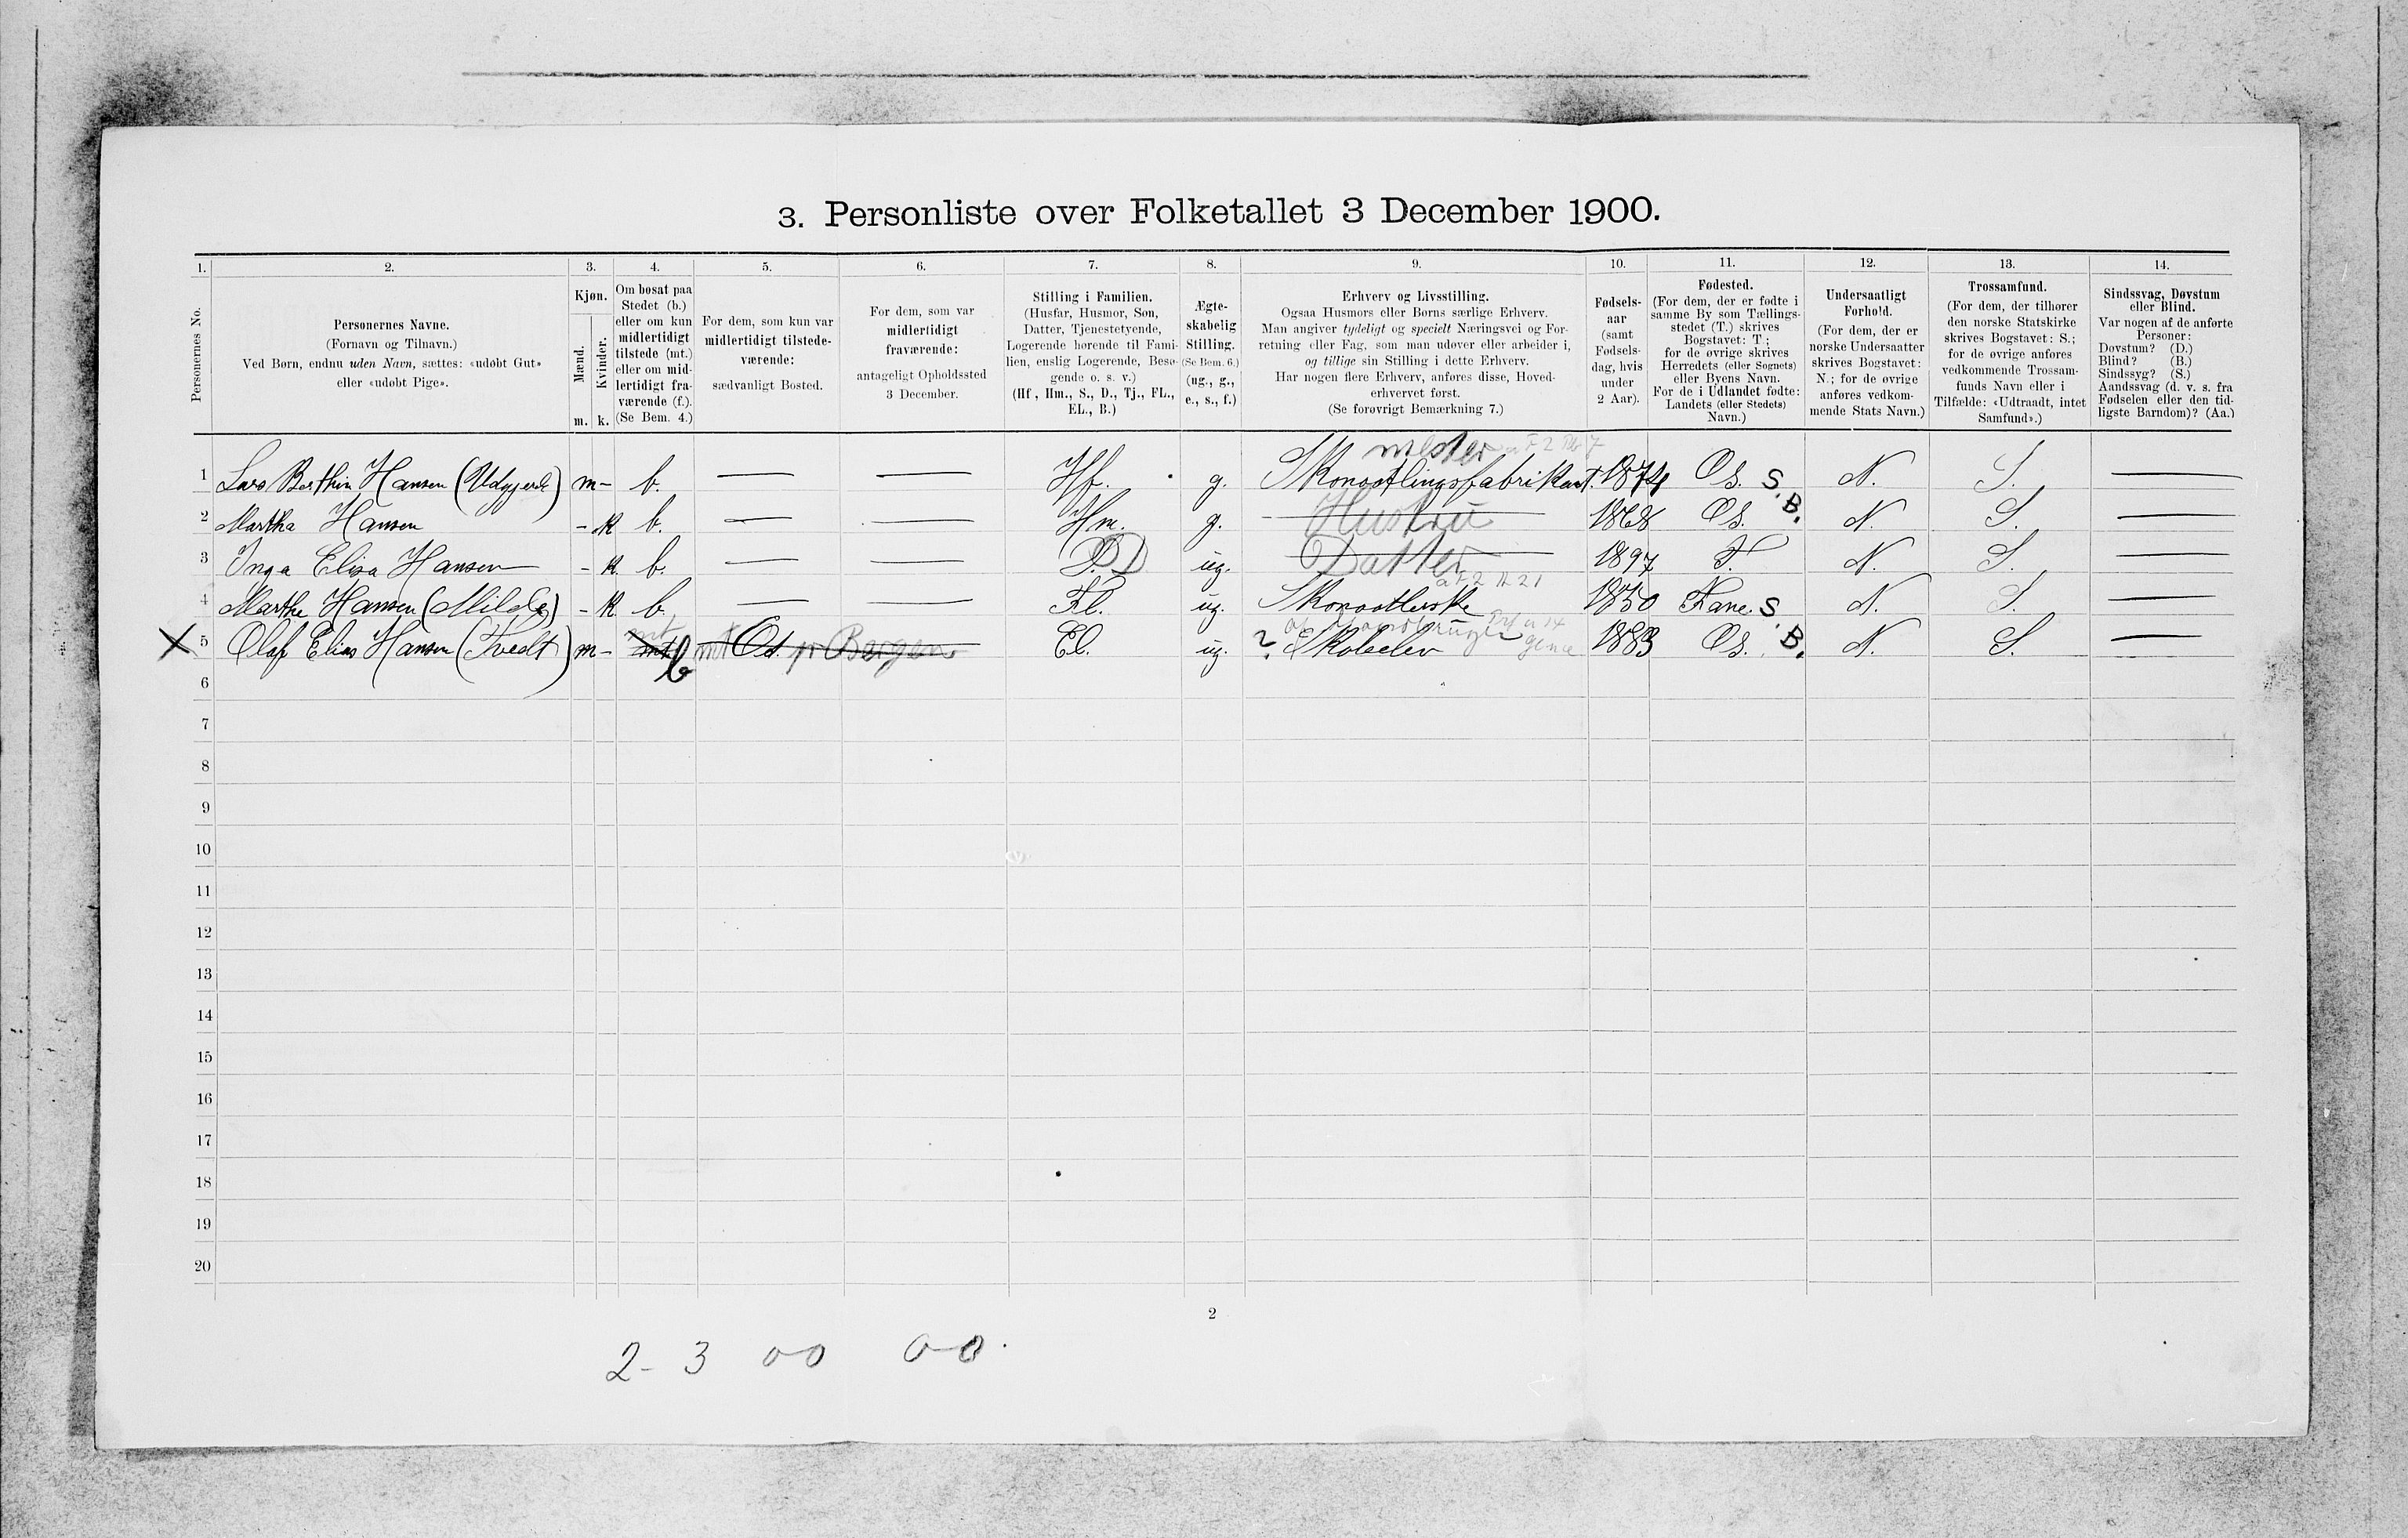 3. Personliste over Folketallet 3 December 1900.
1. 2. 3. 4. 5. 6. 7. 8. 9. 10. 11. 12. 13. 14.
Personernes No.
Personernes Navne.
(Fornavn og Tilnavn.)
Ved Børn, endnu uden Navn, sættes: «udøbt Gut»
eller «udøbt Pige».
Kjøn.
Mænd.
Kvinder.
m. k.
Om bosat paa
Stedet (b.)
eller om kun
midlertidigt
tilstede (mt.)
eller om mid-
lertidigt fra-
værende (f.).
(Se Bem. 4.)
For dem, som kun var
midlertidigt tilstede-
værende:
sædvanligt Bosted.
For dem, som var
midlertidigt
fraværende:
antageligt Opholdssted
3 December.
Stilling i Familien.
(Husfar, Husmor, Søn,
Datter, Tjenestetyende,
Logerende hørende til Fami-
lien, enslig Logerende, Besø-
gende o. s. v.)
(Hf., Hm., S., D., Tj., FL.,
EL., B.)
Ægte-
skabelig
Stilling.
(Se Bem. 6.)
(ug., g.,
e., s., f.)
Erhverv og Livsstilling.
Ogsaa Husmors eller Børns særlige Erhverv.
Man angiver tydeligt og specielt Næringsvei og For-
retning eller Fag, som man udøver eller arbeider i,
og tillige sin Stilling i dette Erhverv.
Har nogen flere Erhverv, anføres disse, Hoved-
erhvervet først.
(Se forøvrigt Bemærkning 7.)
Fødsels-
aar
(samt
Fødsels-
dag, hvis
under
2 Aar).
Fødested.
(For dem, der er fødte i
samme By som Tællings-
stedet (T.) skrives
Bogstavet: T.;
for de øvrige skrives
Herredets (eller Sognets)
eller Byens Navn.
For de i Udlandet fødte:
Landets (eller Stedets)
Navn.)
Undersaatligt
Forhold.
(For dem, der er
norske Undersaatter
skrives Bogstavet:
N.; for de øvrige
anføres vedkom-
mende Stats Navn.)
Trossamfund.
(For dem, der tilhører
den norske Statskirke
skrives Bogstavet: S.;
for de øvrige anføres
vedkommende Trossam-
funds Navn eller i
Tilfælde: «Udtraadt, intet
Samfund».)
Sindssvag, Døvstum
eller Blind.
Var nogen af de anførte
Personer:
Døvstum? (D.)
Blind? (B.)
Sindssyg? (S.)
Aandssvag (d. v. s. fra
Fødselen eller den tid-
ligste Barndom)? (Aa.)
mester
1 Lars Berthin Hansen m- b. — — Hf. g. Skonoatlingsfabrikant. 1874 Os. S.B. N. S. —
2 Martha Hansen - k b. — — Hm. g. Hustru 1868 Os. N. S. —
3 Inga Elisa Hansen - k. b. — — D. D ug. Datter 1897 T. N. S. —
4 Marthe Hansen (Milde) - k b. — — Fl. ug. Skonoatlerske 1850 Fane. S.B. N. S. —
mt
X 5 Olaf Elias Hansen (Tvedt) m- mt b mt Os. pr Bergen El. ug. ? Skoelev 1883 Os. N. S. —
6
7
8
9
10
11
12
13
14
15
16
17
18
19
20
2
2 - 3 00 0-0.